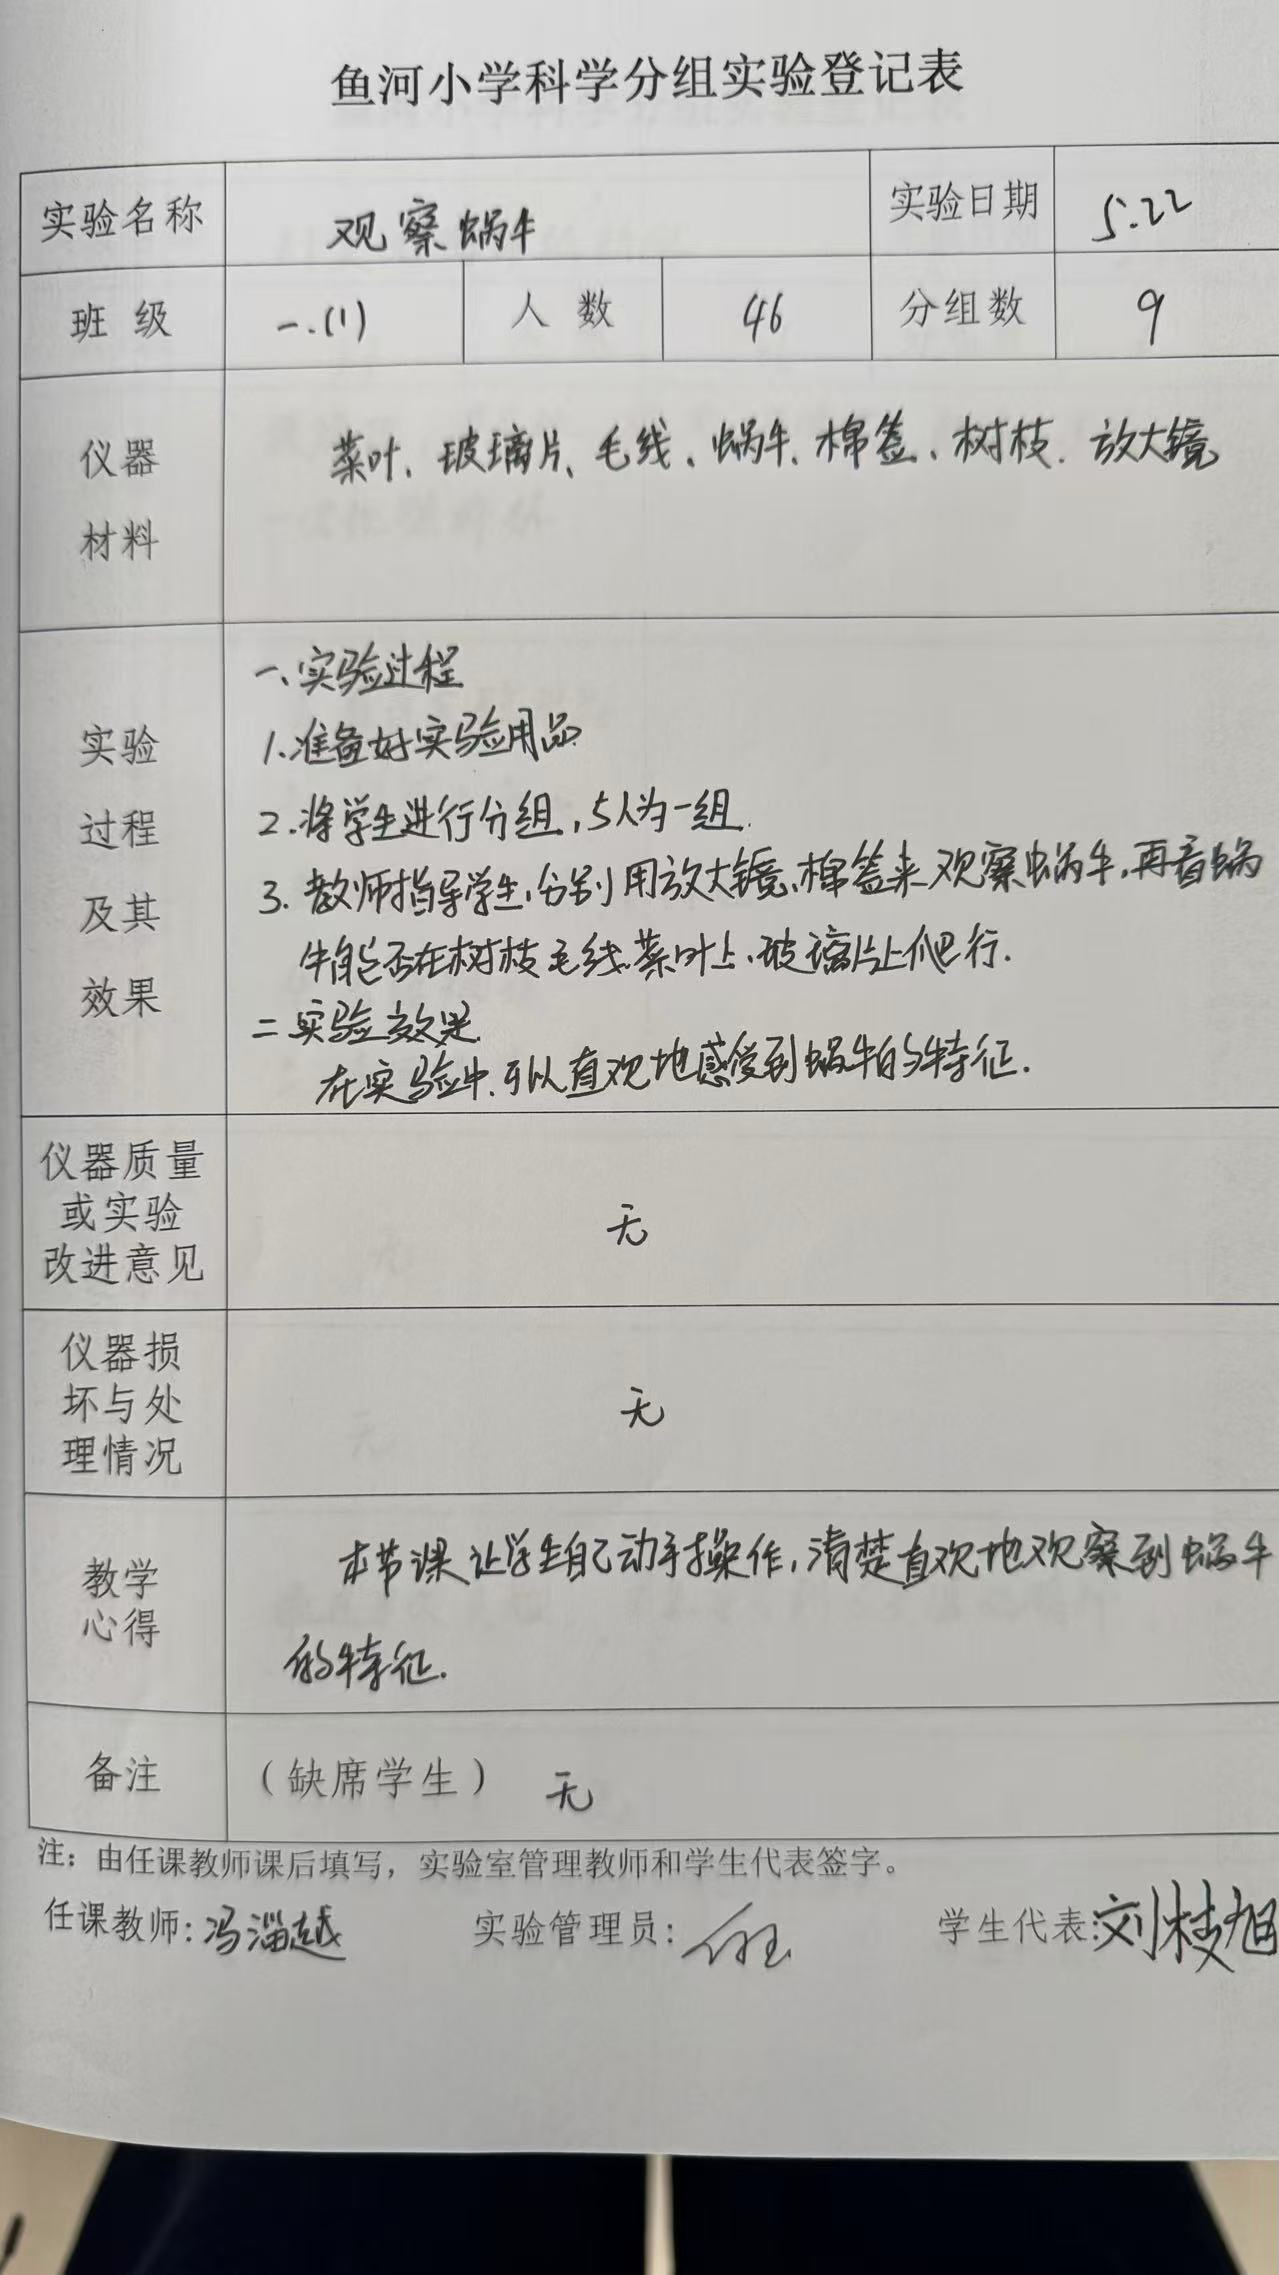 鱼河小学科学分组实验登记表
实验名称 观察蜗牛 实验日期 5.22
班 级 一.(1) 人 数 46 分组数 9
仪器
材料
菜叶、玻璃片、毛线、蜗牛、棉签、树枝、放大镜
实验
过程
及其
效果
一、实验过程
1.准备好实验用品
2.将学生进行分组,5人为一组.
3.教师指导学生,分别用放大镜、棉签来观察蜗牛,再看蜗
牛能否在树枝毛线、菜叶上、玻璃片上爬行.
二 实验效果
在实验中、可以直观地感受到蜗牛的特征.
仪器质量
或实验
改进意见
无
仪器损
坏与处
理情况
无
教学
心得
本节课让学生自己动手操作,清楚直观地观察到蜗牛
的特征.
备注 (缺席学生) 无
注:由任课教师课后填写,实验室管理教师和学生代表签字。
任课教师:冯淄越 实验管理员: 学生代表:刘枝旭